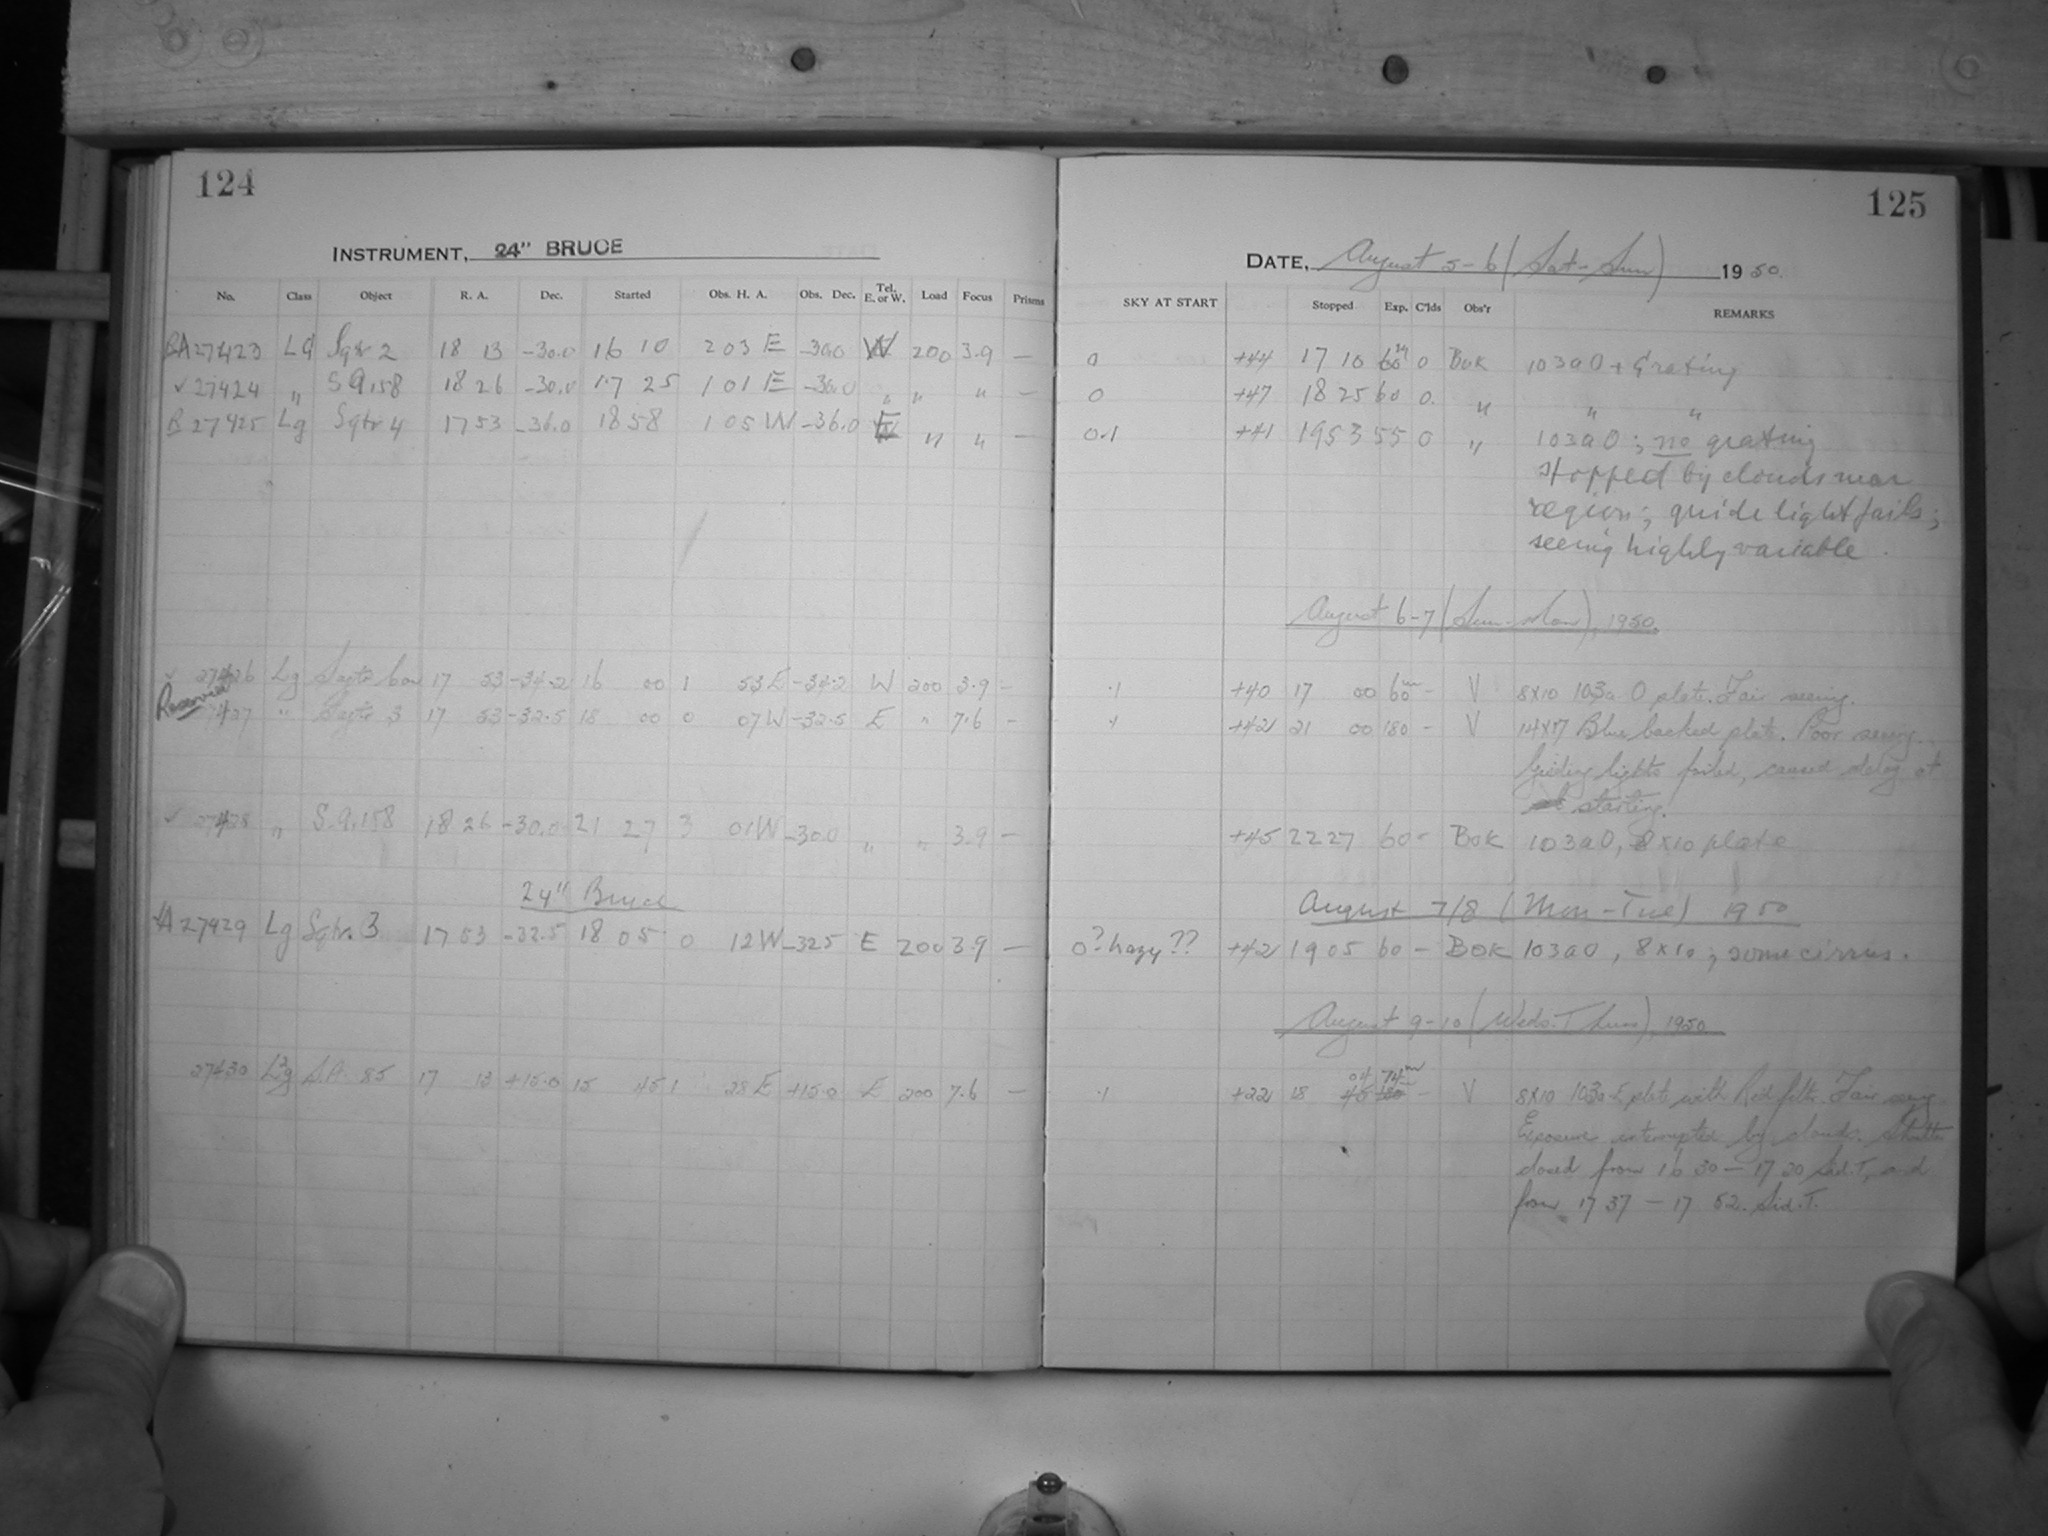 124
INSTRUMENT, 24" BRUCE
No. Class Object R. A. Dec. Started Obs. H. A. Obs. Dec. Tel. E. or W. Load Focus Prisms
A27423 LG Sgtr 2 18 13 -30.0 16 10 2 03 E -30.0 W 200 3.9 —
✓ 27424 " S.9.158 18 26 -30.0 17 25 1 01 E -30.0 " " " —
B 27425 Lg Sgtr 4 17 53 -36.0 18 58 1 05 W -36.0 E " " —
✓ 27426 Lg 17 53 -34.2 16 00 1 53 E -34.2 W 200 3.9 —
27427 " Sagtr 3 17 53 -32.5 18 00 0 07 W -32.5 E " 7.6 —
✓ 27428 " S.9.158 18 26 -30.0 21 27 3 01 W -30.0 " " 3.9 —
24" Bruce
A 27429 Lg Sgtr. 3 17 53 -32.5 18 05 0 12 W -32.5 E 200 3.9 —
27430 S.A. 85 17 13 +15.0 15 45 1 28 E +15.0 E 200 7.6 —
125
DATE, August 5-6 (Sat-Sun) 1950.
SKY AT START Stopped Exp. C'lds Obs'r REMARKS
0 +44 17 10 60 0 BOK 103aO + Grating
0 +47 18 25 60 0. " " "
0.1 +41 19 53 55 0 " 103aO; no grating
stopped by clouds near
region; guide light fails;
seeing highly variable.
August 6-7 (Sun-Mon), 1950.
.1 +40 17 00 60m – V 8x10 103a-O plate. Fair seeing.
.1 +42 21 00 180 – V 14x17 Blue backed plate. Poor seeing.
Guiding lights failed, caused delay at
starting.
+45 22 27 60 – BOK 103aO, 8x10 plate
August 7/8 (Mon-Tue) 1950
0? hazy?? +42 19 05 60 – BOK 103aO, 8x10; some cirrus.
August 9-10 (Weds.-Thurs), 1950
04 74m
.1 +22 18 45 180 – V 8x10 103a-E plate with Red filter. Fair seeing
Exposure interrupted by clouds. Shutter
closed from 16 30 – 17 20 Sid.T, and
from 17 37 – 17 52. Sid.T.